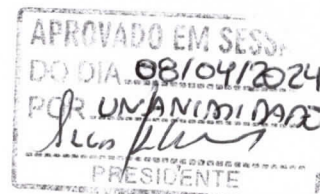 APROVADO EM SESS
DO DIA 08/04/2024
POR UNANIMIDADE
PRESIDENTE